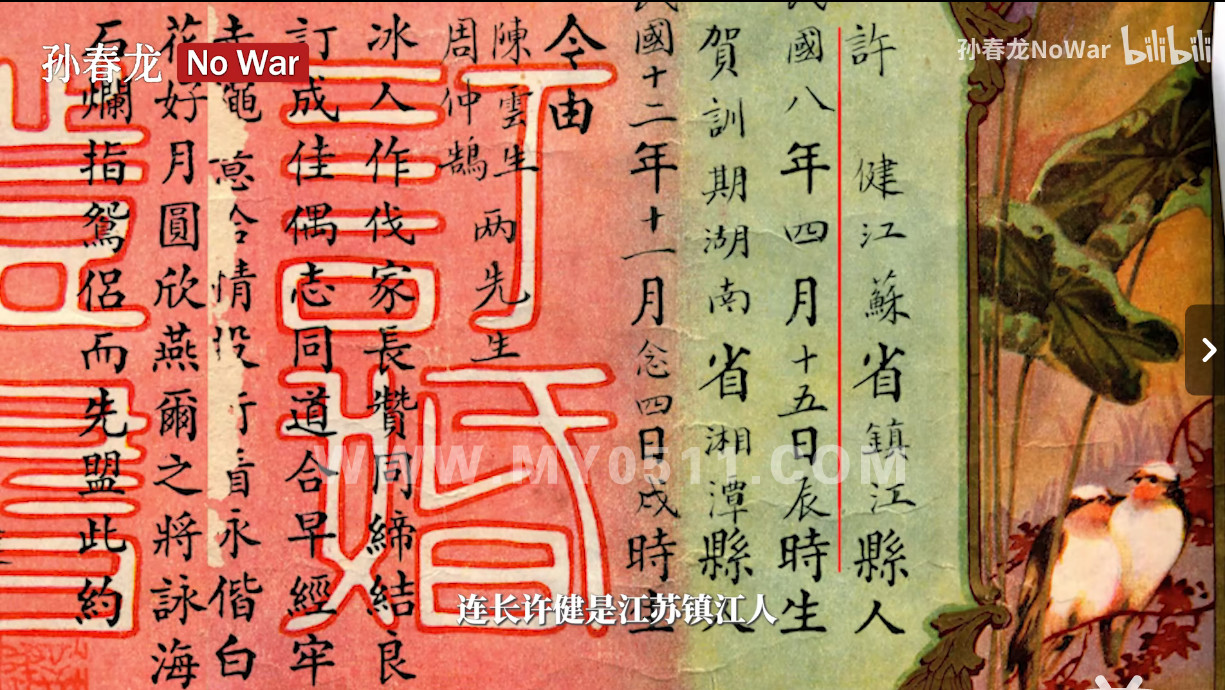 孙春龙 No War
孙春龙NoWar bilibili
許 健江蘇省鎮江縣人
國八年四月十五日辰時生
賀訓期湖南省湘潭縣
國十二年十一月念四日戌時
今由
陳雲生
周仲鵠
两先生
冰人作伐家長贊同締結良
訂成佳偶志同道合早經牢
意合情投行看永偕白
花好月圓欣燕爾之將詠海
石爛指鴛侶而先盟此約
訂婚
WWW.MY0511.COM
连长许健是江苏镇江人